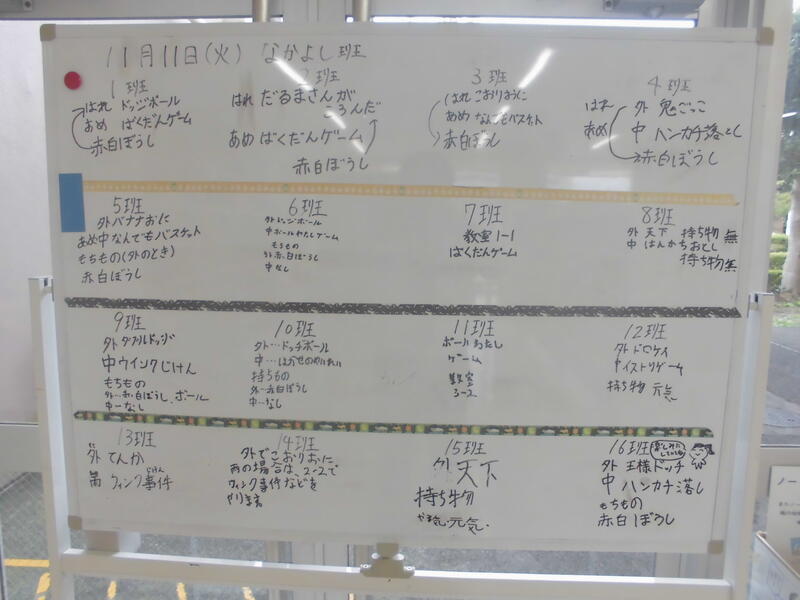 11月11日(火) なかよし班
1班
はれ ドッジボール
あめ ばくだんゲーム
赤白ぼうし
2班
はれ だるまさんが
ころんだ
あめ ばくだんゲーム
赤白ぼうし
3班
はれ こおりおに
あめ なんでもバスケット
赤白ぼうし
4班
はれ 外 鬼ごっこ
あめ 中 ハンカチ落とし
赤白ぼうし
5班
外 バナナおに
あめ 中 なんでもバスケット
もちもの(外のとき)
赤白ぼうし
6班
外 ドッジボール
中 ボールわたしゲーム
もちもの
外 赤白ぼうし
中 なし
7班
教室1-1
ばくだんゲーム
8班
外 天下 持ち物 無
中 はんかちおとし
持ち物 無
9班
外 ダブルドッジ
中 ウインクじけん
もちもの
外…赤白ぼうし、ボール
中ーなし
10班
外…ドッチボール
中…はかせの
持ちもの
外…赤白ぼうし
中…なし
11班
ボールわたし
ゲーム
教室
3-2
12班
外 ドロケイ
中 イストリゲーム
持ち物 元気
13班
外 てんか
ウィンク事件
14班
外でこおりおに
雨の場合は、2-2で
ウィンク事件などを
やります
15班
外 天下
持ち物
やる気・元気・
16班
楽しみに
しててね
外 王様ドッチ
中 ハンカチ落し
もちもの
赤白ぼうし